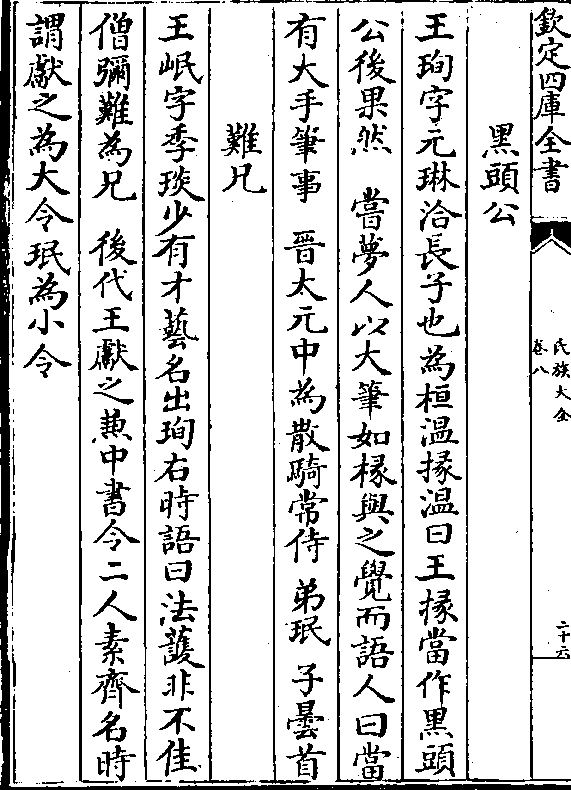 欽定四庫全書
氏族大全
卷八
二十六
黑頭公
王珣字元琳洽長子也為桓温掾温曰王掾當作黑頭
公後果然　嘗夢人以大筆如椽與之覺而語人曰當
有大手筆事　晉太元中為散騎常侍　弟珉　子曇首
難兄
王岷字季琰少有才藝名出珣右時語曰法護非不佳
僧彌難為兄　後代王獻之兼中書令二人素齊名時
謂獻之為大令珉為小令